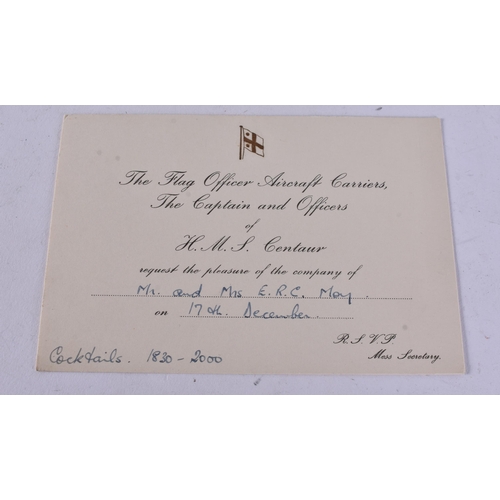 The Flag Officer Aircraft Carriers,
The Captain and Officers
of
H.M.S. Centaur
request the pleasure of the company of
Mr. and Mrs E.R.C. May.
on 17th. December.
R.S.V.P.
Mess Secretary.
Cocktails. 1830-2000